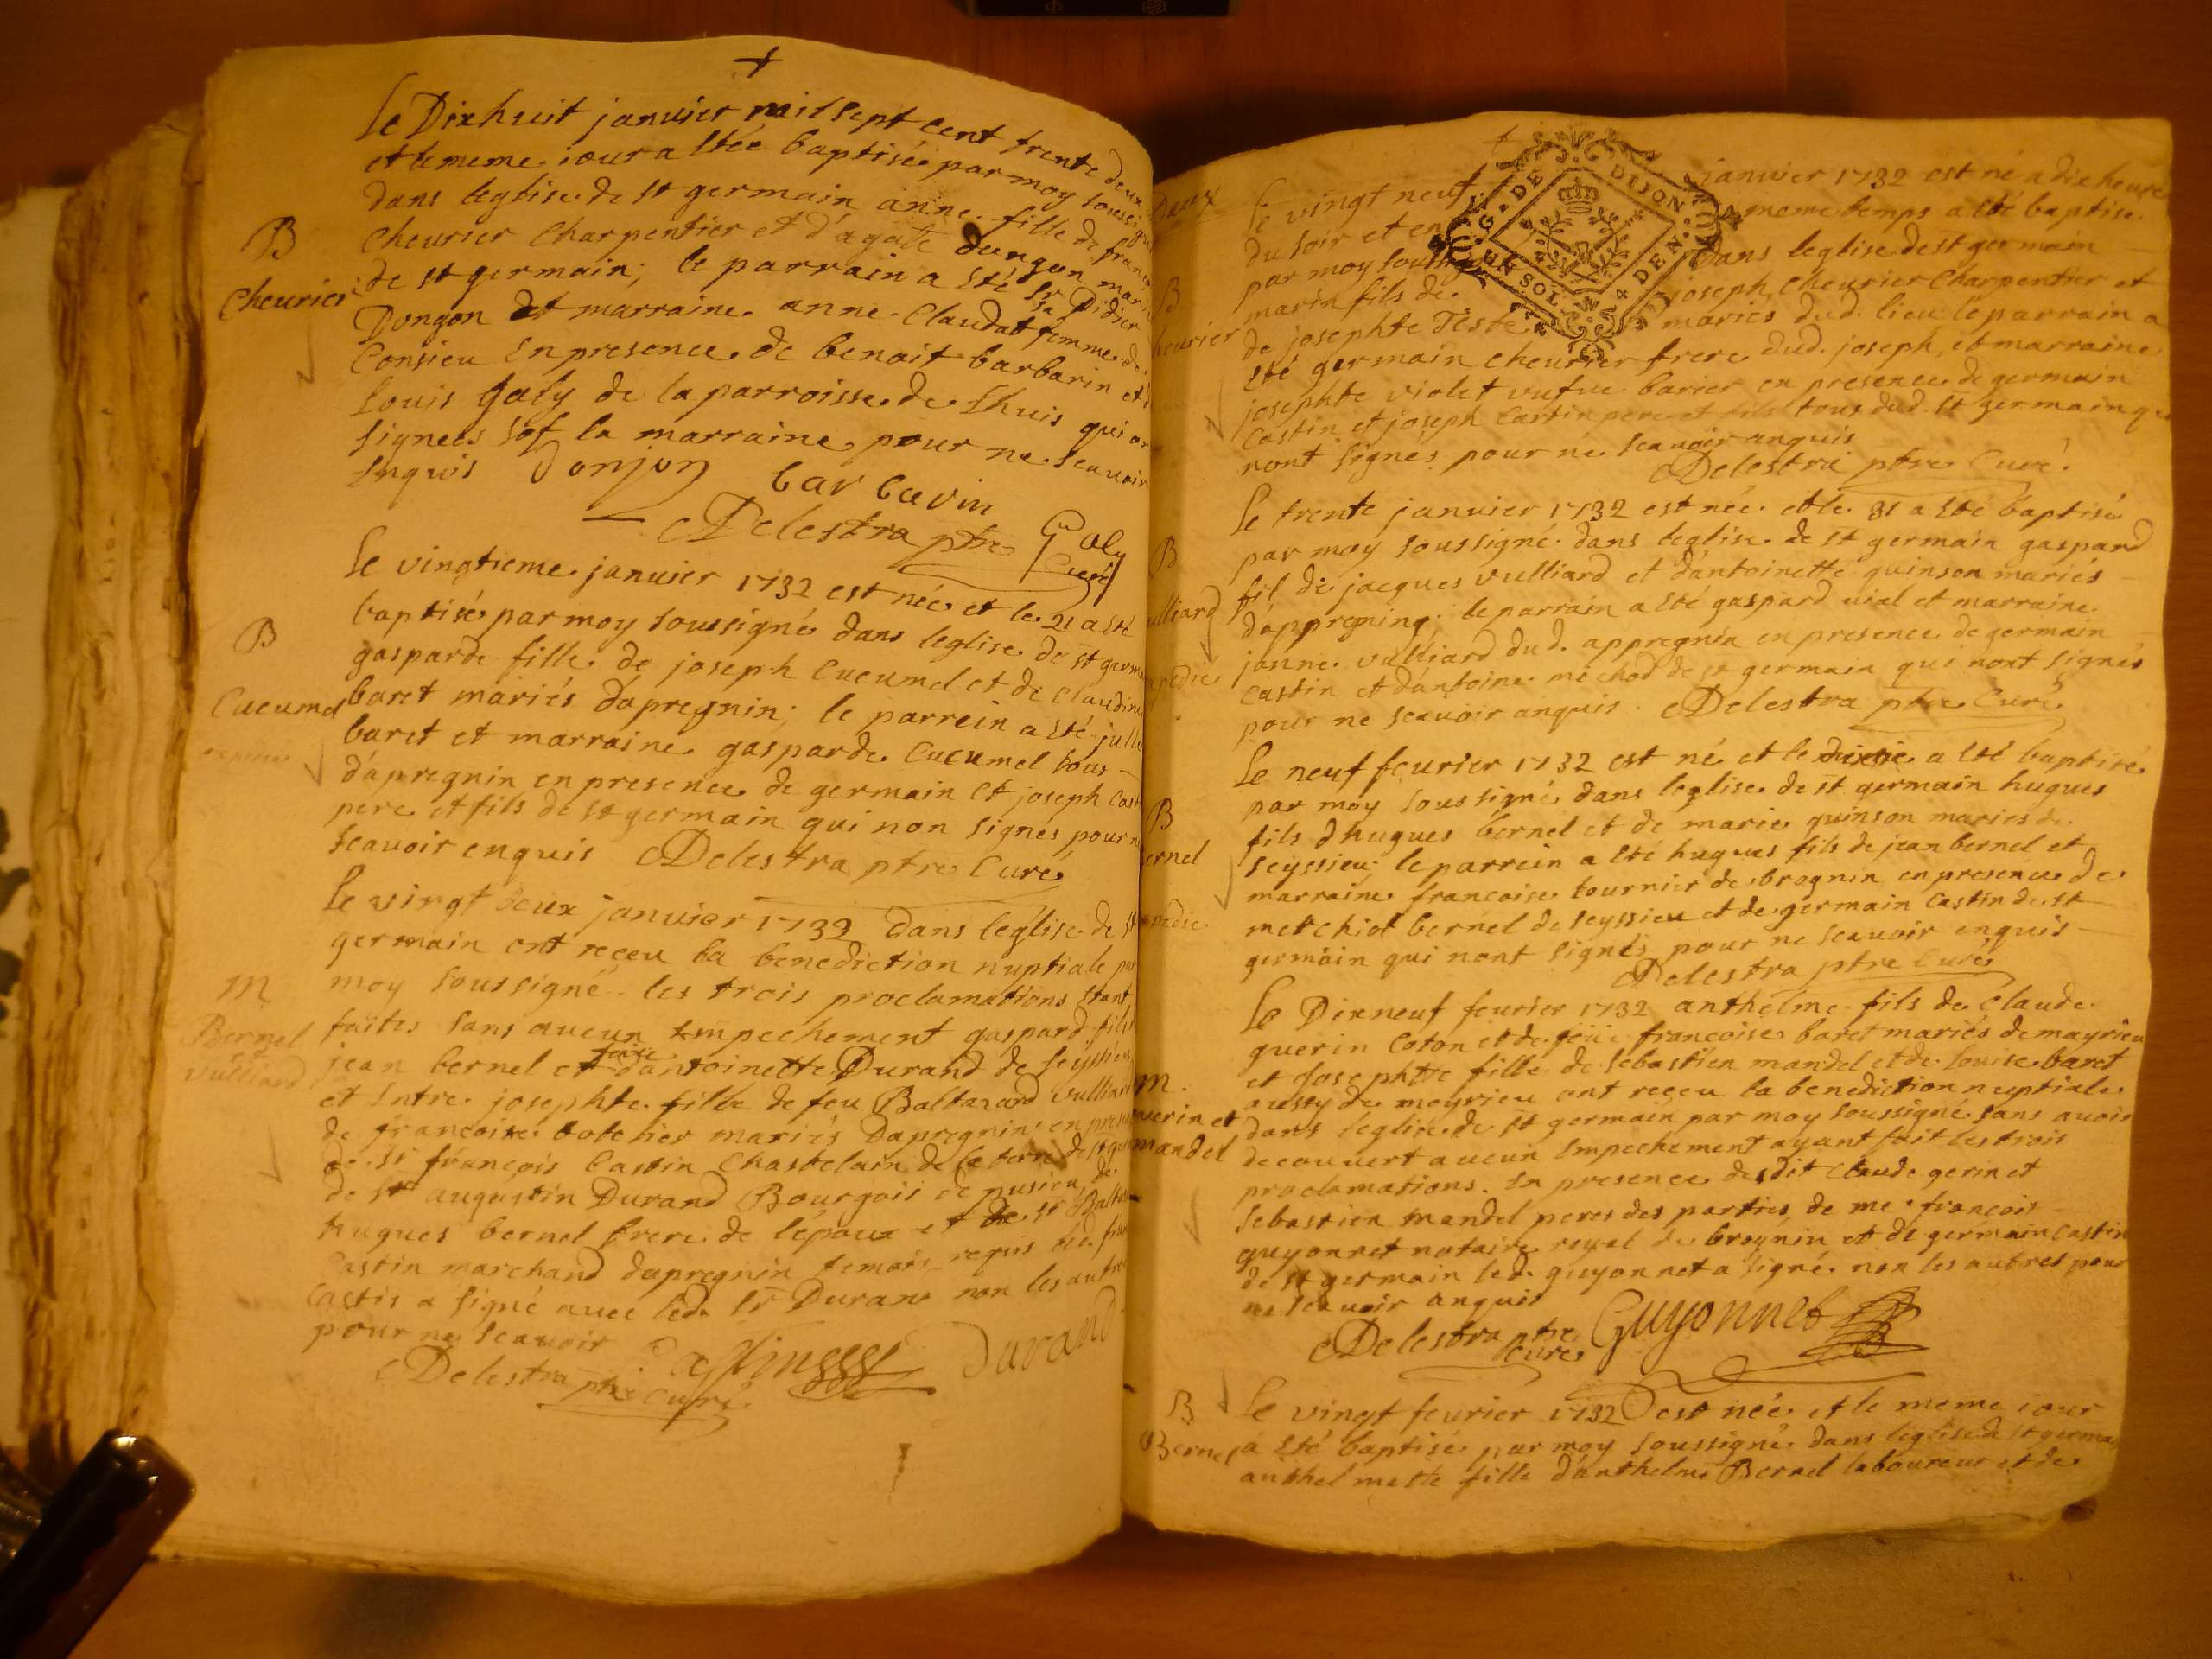 Le Dixhuit janvier mil sept cent trente deux
et le meme iour a Etée baptisée par moy soussigné
dans leglise de st germain anne fille de franç
B
cheurier charpentier et d'agate dungon mari
Cheurier
de st germain; le parrain a Eté sr Didier
Dongon et marraine anne Claudat femme de
Consieu En presence de benoit barbarin et
Louis Galy de la parroisse de Lhuis qui on
signees sof la marraine pour ne scauoir
Enquis Donjon barbarin
Delestra ptre Curé Galy
Le vingtieme januier 1732 est née et le 21 a Eté
baptisé par moy soussigné dans leglise de st germ
B
gasparde fille de joseph Cucumel et de Claudine
Cucumel
baret mariés dapregnin; le parrein a Eté jull
baret et marraine gasparde Cucumel tous
d'apregnin en presence de germain et joseph Cast
pere et fils de st germain qui non signés pour n
scauoir enquis Delestra ptre Curé
Le vingt deux januier 1732 dans leglise de st
germain ont reçeu la benediction nuptiale par
M
moy soussigné les trois proclamations Etant
Bernel et vulliard
faites sans aucun Empechement gaspard fils
jean bernel et dantoinette Durand de seissieu
et Entre josephte fille de feu Baltazard vulliard
de francoise botelier mariés Dapregnin en presen
de sr françois Castin Chastelain de la terre de st ger
de sr augustin Durand Bourgois de pusieu de
hugues bernel frere de lépoux et de sr Balta
Castin marchand dapregnin temois requis led. fran
Castin a signé auec led. sr Durand non les autre
pour ne scauoir Castin Durand
Delestra ptre Curé
G. DE DIJON
UN SOL 4 DEN.
Le vingt neuf januier 1732 est né a dix heure
du soir et en meme temps a Eté baptise
par moy souss dans leglise de st germain
B
marin fils de joseph Cheurier Charpentier et
heurier
de josephte Teste mariés dud. lieu le parrain a
Eté germain cheurier frere dud. joseph, et marraine
josephte violet vufue barier en presence de germain
Castin et joseph Castin pere et fils tous dud. st germain qu
nont signés pour ne scauoir anquis
Delestra ptre Curé
Le trente januier 1732 est née et le 31 a Eté baptisé
B
par moy soussigné dans leglise de st germain gaspard
ulliard
fil de jacques vulliard et dantoinette quinson mariés
dappregning. le parrain a Eté gaspard uial et marraine
janne vulliard dud. appregnin en presence de germain
castin et dantoine michod de st germain qui nont signés
pour ne scauoir anquis. Delestra ptre Curé
Le neuf feurier 1732 est né et le dixie a Eté baptisé
B
par moy soussigné dans leglise de st germain hugues
ernel
fils dhugues bernel et de marie quinson mariés de
seyssieu; le parrein a Eté hugues fils de jean bernel et
marraine francoise tournier de brognin en presence de
merchiot bernel de seyssieu et de germain castin de st
germain qui nont signés pour ne scauoir enquis
Delestra ptre Curé
Le Dixneuf feurier 1732 anthelme fils de Claude
guerin Coton et de feüe francoise baret mariés de mayrieu
et Josephtte fille de sebastien mandel et de Louise baret
M.
aussy de meyrieu ont reçeu la benediction nuptiale
uerin et mandel
dans léglise de st germain par moy soussigné sans auoir
decouuert aucun Empechement ayant fait les trois
proclamations. En presence dudit claude gerin et
Sebastien mandel peres des parties de me. françois
guyonnet notaire royal de brognin et de germain castin
de st germain led. guyonnet a signé non les autres pour
ne scauoir anquis
Delestra ptre Curé Guyonnet
B
Le vingt feurier 1732 est née et le meme iour
Bernel
a Eté baptisé par moy soussigné dans leglise de st germa
anthelmette fille d'anthelme Bernel laboureur et de